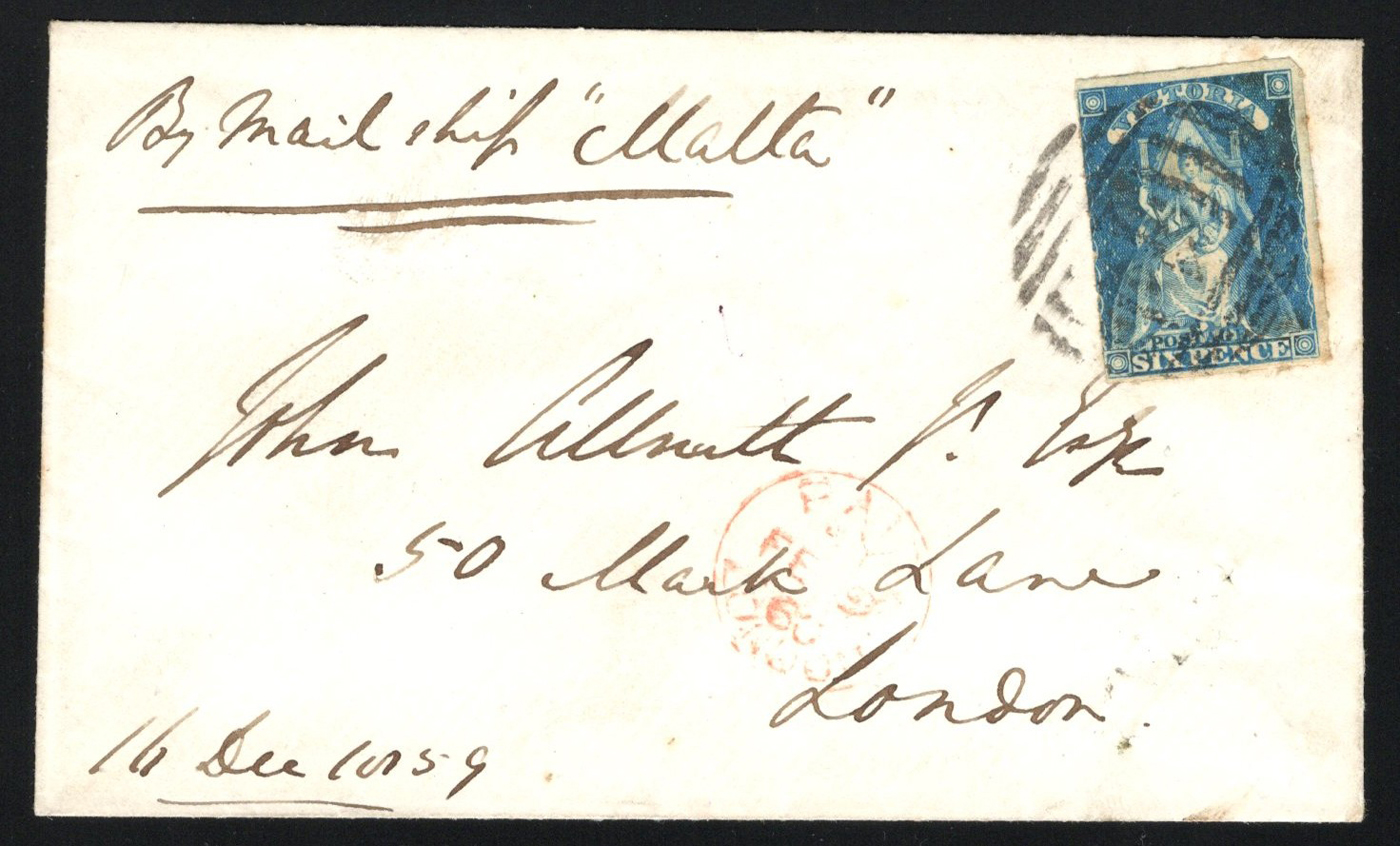 By Mail ship "Malta"
VICTORIA
POSTAGE
SIX PENCE
John Allnutt Jr. Esqr
50 Mark Lane
London
PAID
FE 9
60
LONDON
16 Dec 1859